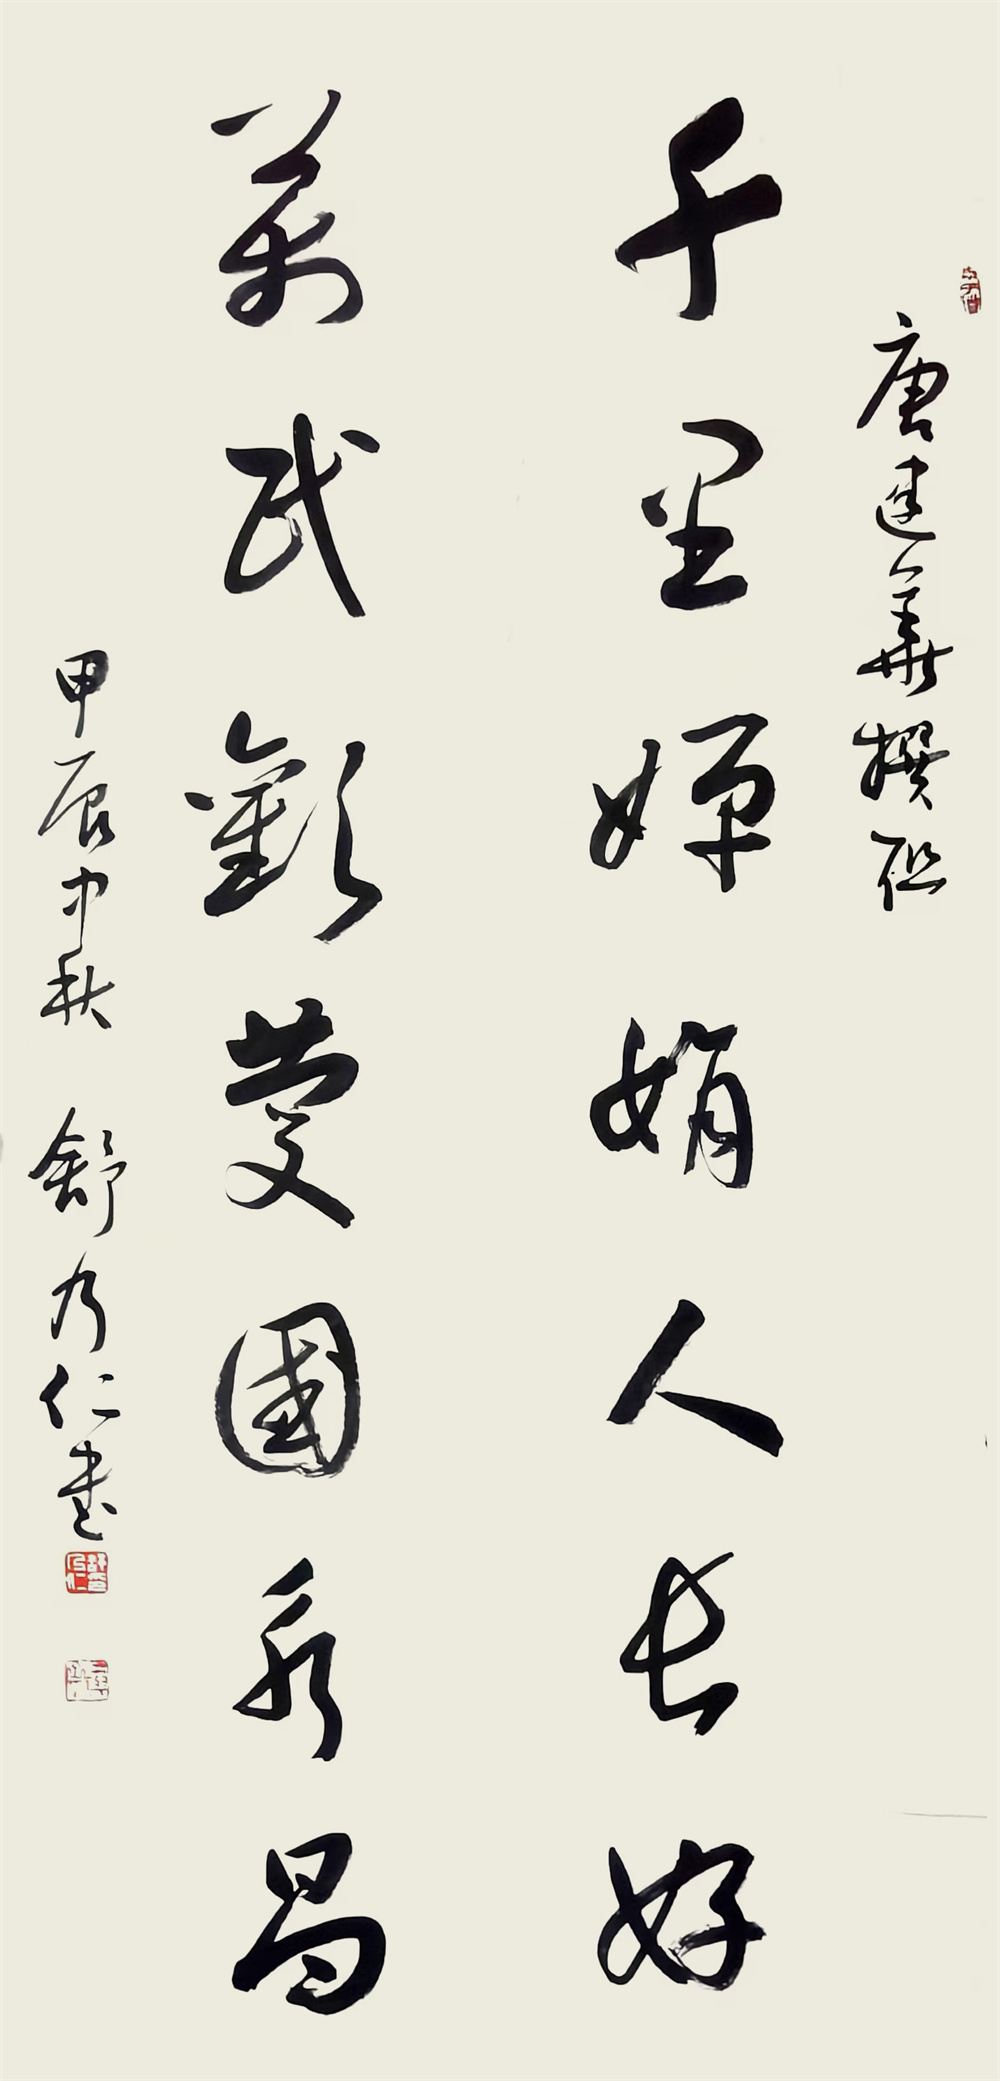 唐建華撰聯
千里嬋娟人長好
萬民歡慶國永昌
甲辰中秋 舒乃仁書